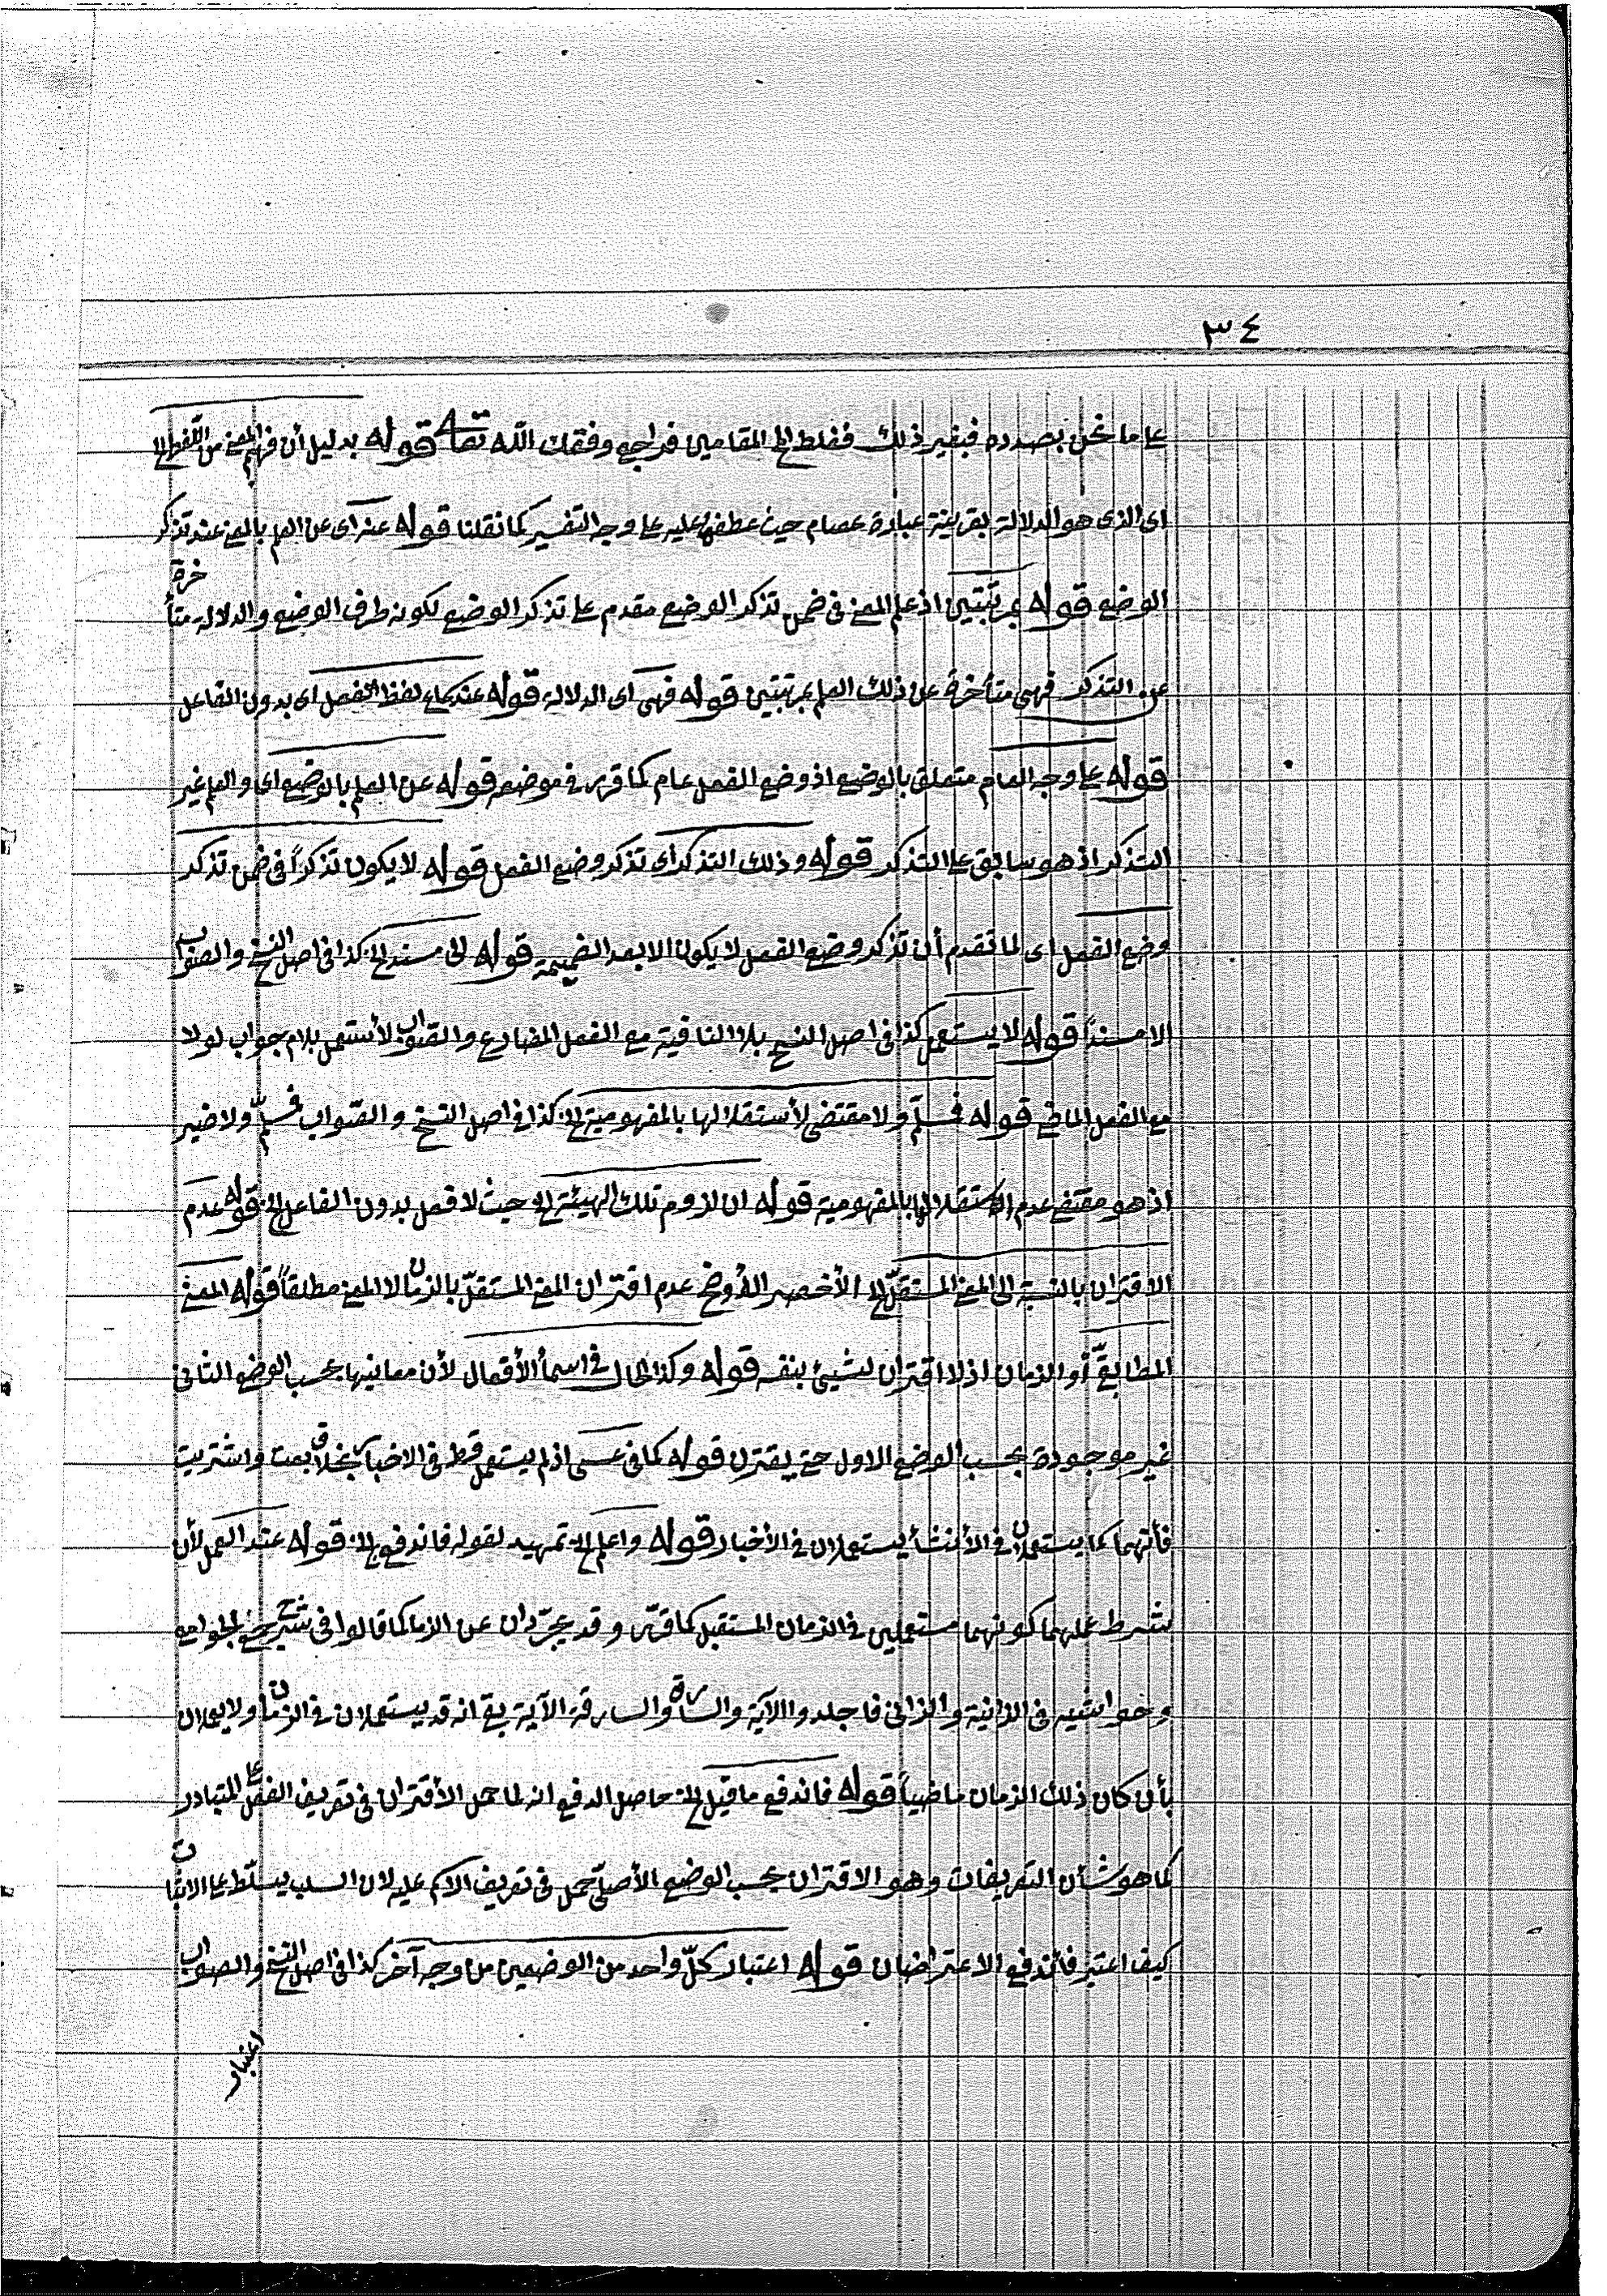 ٣٤
عا ما نحن بصدده فبغير ذلك فغلط الخ المقامين فراجع وفقك الله تعا قوله بدليل أن فهم المعنى من اللفظ الخ
اى الذى هو الدلالة بقرينة عبارة عصام حيث عطفها عليه عا وجه التفسير كما نقلنا قوله عنه اى عن العلم بالمعنى عند تذكر
الوضع قوله بمرتبتين اذ علم المعنى فى ضمن تذكر الوضع مقدم عا تذكر الوضع لكونه طرف الوضع والدلالة متأخرة
عن التذكر فهى متأخرة عن ذلك العلم بمرتبتين قوله فهى اى الدلالة قوله عند سماع لفظ الفعل اى بدون الفاعل
قوله عا وجه العام متعلق بالوضع اذ وضع الفعل عام كما قرر فى موضعه قوله عن العلم بالوضع اى والعلم غير
التذكر اذ هو سابق عا التذكر قوله وذلك التذكر اى تذكر وضع الفعل قوله لا يكون تذكراً فى ضمن تذكر
وضع الفعل اى لما تقدم أن تذكر وضع الفعل لا يكون الا بعد الضميمة قوله الى مسند الخ كذا فى اصل النسخ والصواب
الا مسنداً قوله لا يستعمل كذا فى اصل النسخ بلا النافية مع الفعل المضارع والصواب لأستعمل بلام جواب لولا
مع الفعل الماضى قوله فمسلّم ولا مقتضى لأستقلالها بالمفهومية الخ كذا فى اصل النسخ والصّواب فمسلّم ولا ضير
اذ هو مقتضى عدم الاستقلالها بالمفهومية قوله ان لزوم تلك الهيئة الخ حيث لا فعل بدون الفاعل الخ قوله عدم
الاقتران بالنسبة الى المعنى المستقلّ الخ الأخصر الأوضح عدم اقتران المعنى المستقلّ بالزمان لا المعنى مطلقاً قوله المعنى
المطابقىّ أو الزمان اذ لا اقتران لشيئ بنفسه قوله وكذا الحال فى اسمأ الأفعال لأن معانيها بحسب الوضع الثانى
غير موجودة بحسب الوضع الاول حتى يقترن قوله كما فى عسى اذ لم يستعمل قط فى الاخبار بخلاف بعت واشتريت
فأنهما كما يستعملان فى الأنشأ يستعملان فى الأخبار قوله واعلم الخ تمهيد لقوله فاندفع الخ قوله عند العمل لأن
شرط عملهما كونهما مستعملين فى الزمان المستقبل كما قرّر وقد يجرّدان عن الزما كما قالوا فى شرح جمع الجوامع
وحواشيه فى الزانية والزانى فاجلدوا الآية والسارق والسارقة الآية بقى انه قد يستعملان فى الزمان ولا يعملان
بأن كان ذلك الزمان ماضياً قوله فاندفع ما قيل الخ حاصل الدفع انه لما حمل الأقتران فى تعريف الفعل عا المتبادر
كما هو شأن التعريفات وهو الاقتران بحسب الوضع الأصلىّ حمل فى تعريف الاسم عليه لان السلب يسلّط عا الاثبات
كيف اعتبر فاندفع الاعتراضان قوله اعتبار كلّ واحد من الوضعين من وجه آخر كذا فى اصل النسخ والصواب
اعتبار